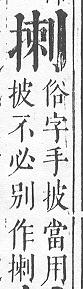 揦
俗字手披當用
披不必别作揦